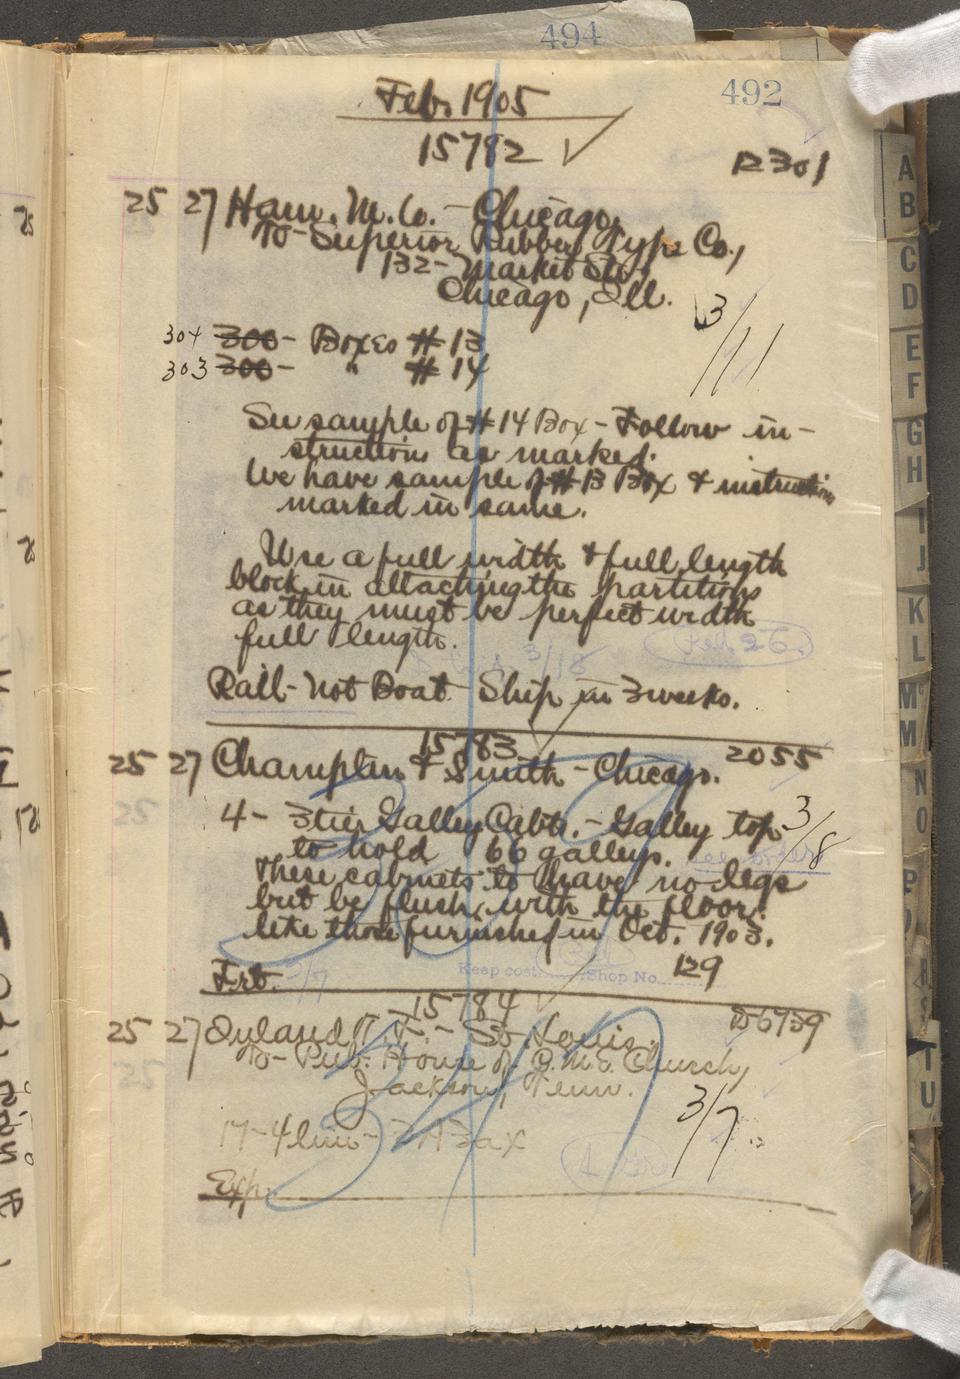 494
492
Feb. 1905
15782 ✓
12301
25 27 Ham. M. Co. - Chicago,
To - Superior Rubber Type Co.,
132 - Market St.,
Chicago, Ill.
3/11
304 300 - Boxes # 13
303 300 - " # 14
See sample of # 14 Box - Follow in-
structions as marked.
We have sample of # 13 Box & instruction
marked in same.
Use a full width & full length
block in attaching the partitions
as they must be perfect width
full length.
3/18
Rail - Not Boat - Ship in 3 weeks.
15783
2055
25 27 Champlin & Smith - Chicago.
4 - 3 tier Galley Cabts. - Galley top
3/8
to hold 66 galleys.
see order
These cabinets to have no legs
but be flush with the floor
like those furnished in Oct. 1903.
Keep cost Shop No.
129
Frt. 3/7
15784
D6939
25 27 Dyland T. F. - St. Louis.
To - Pub. House of C. M. E. Church,
Jackson, Tenn.
3/7
17 - 4 line -
Exp.
A
B
C
D
E
F
G
H
I
J
K
L
Mc
M
N
O
P
R
S
T
U